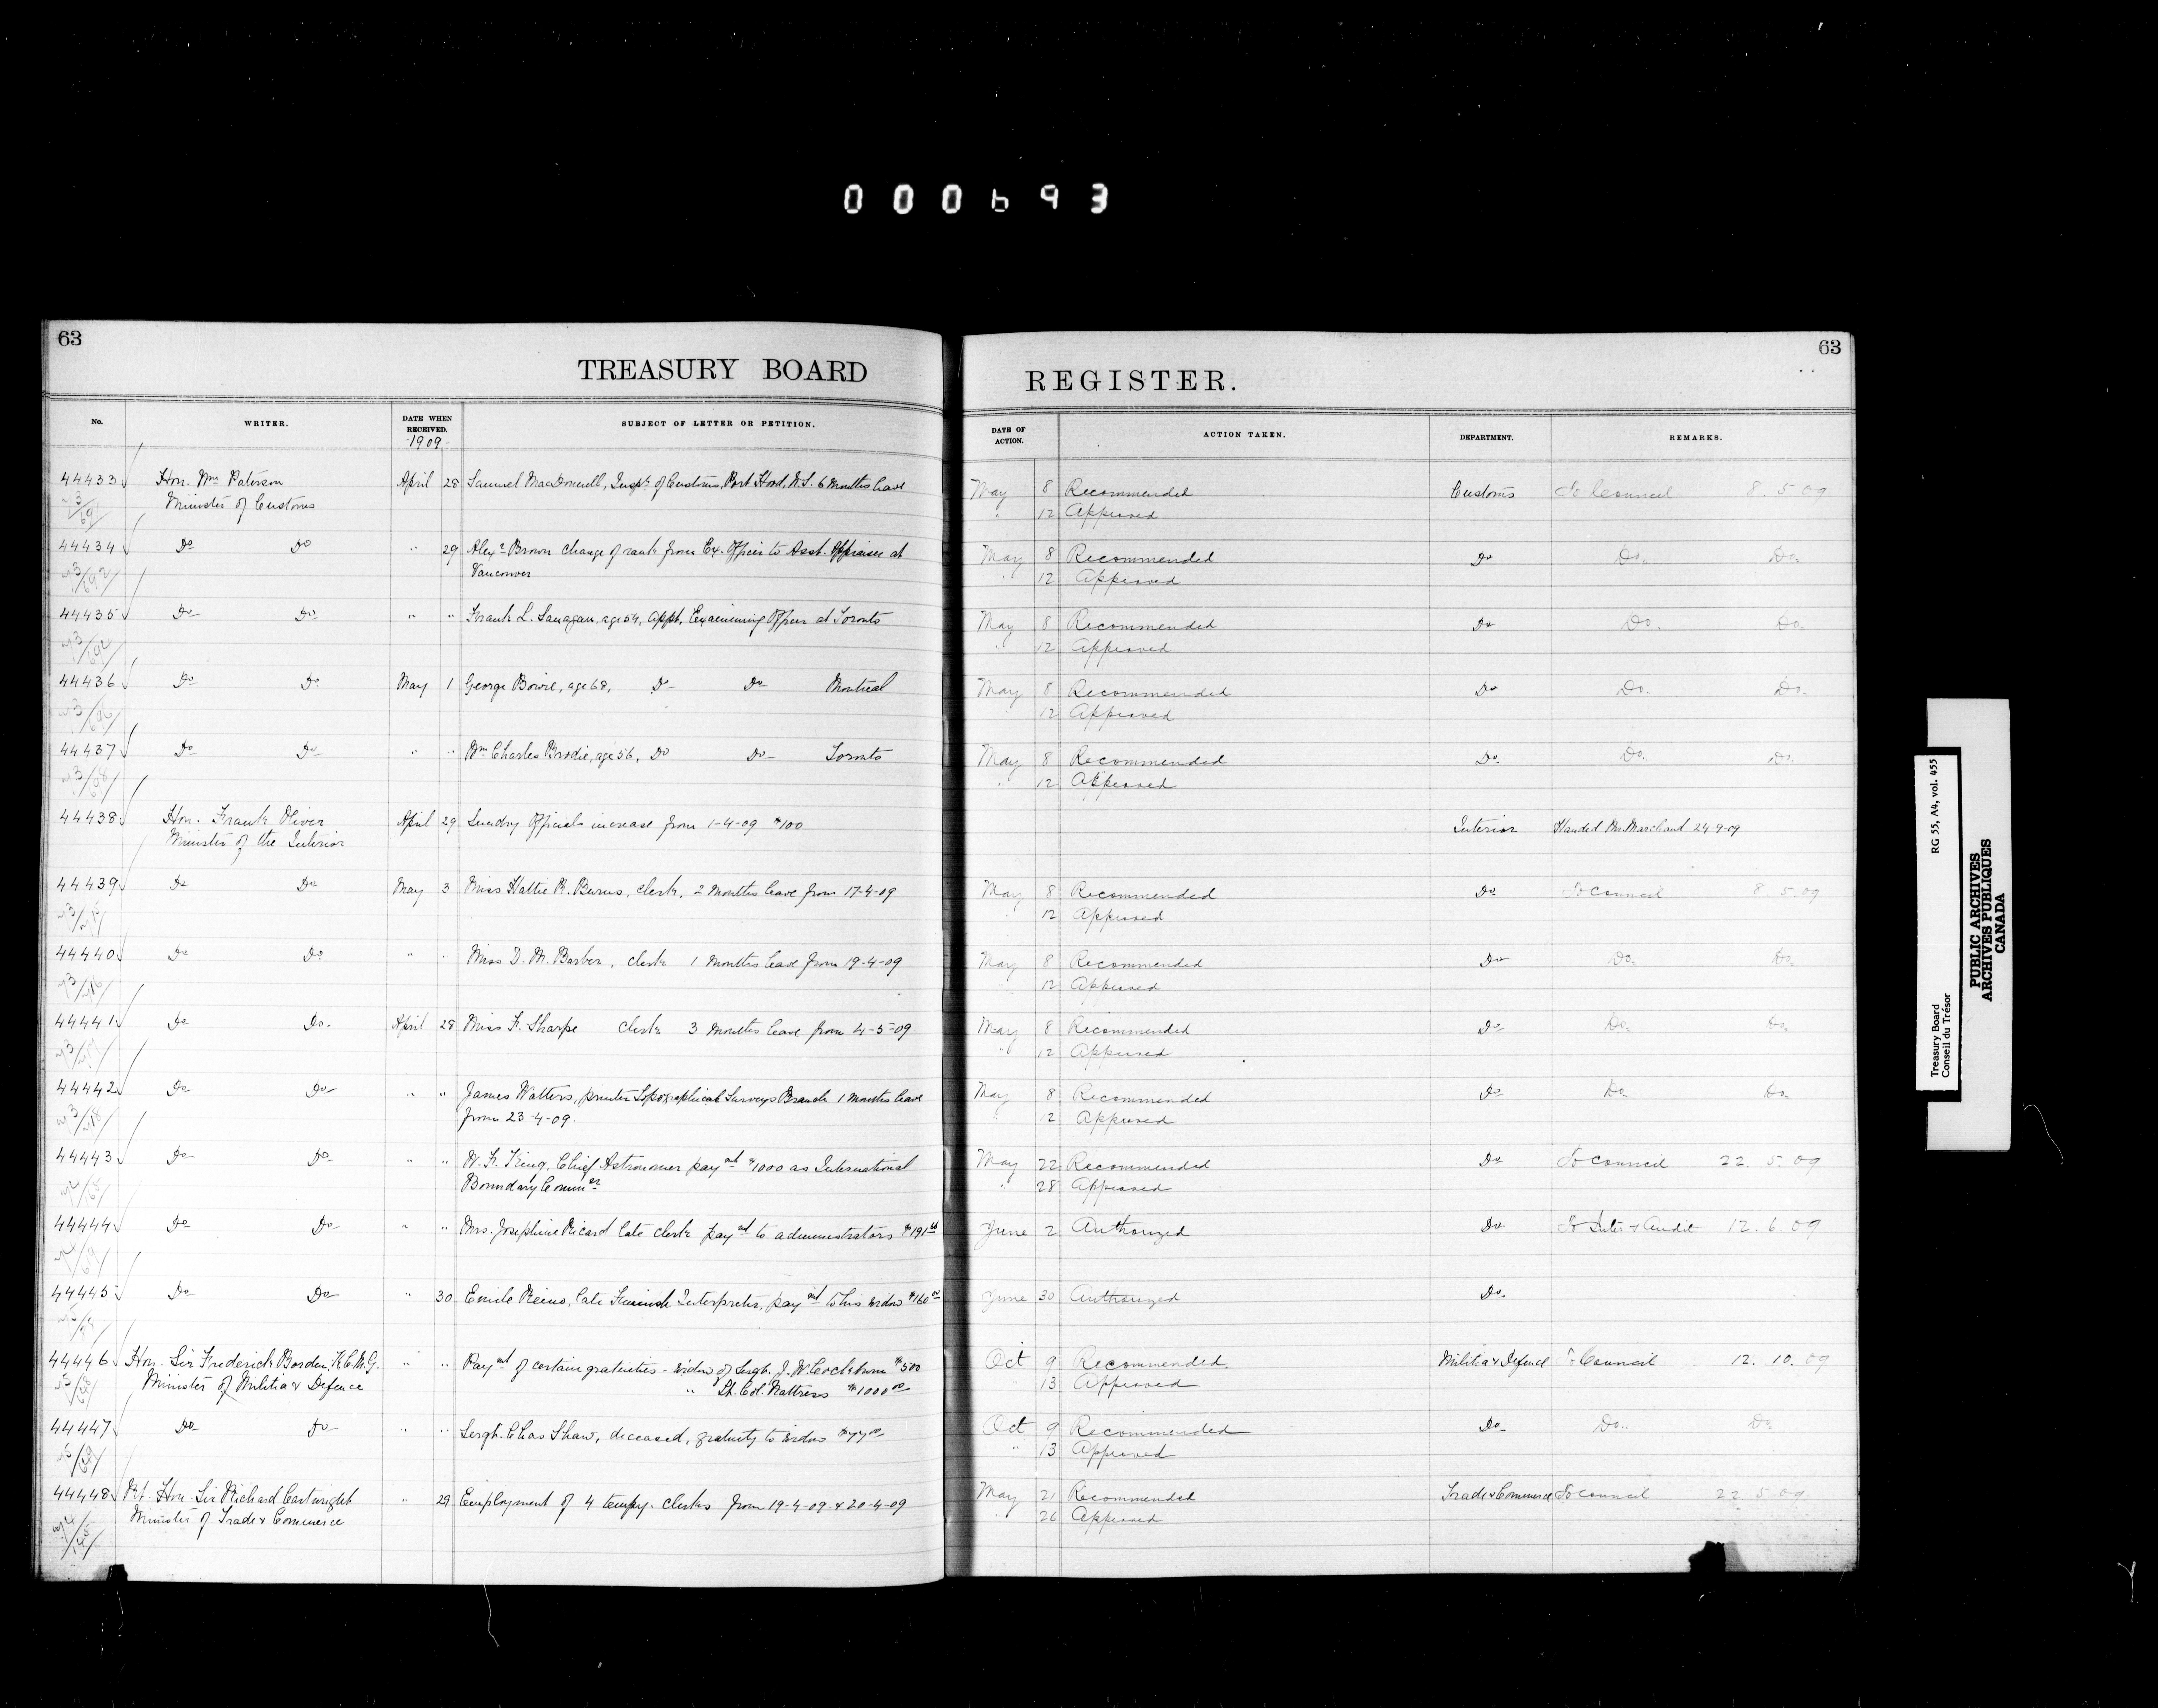 000693
63
TREASURY BOARD
No.
WRITER.
DATE WHEN RECEIVED.
-1909-
SUBJECT OF LETTER OR PETITION.
44433 Hon. Wm Paterson April 28 Samuel MacDonnell, Inspr. of Customs, Port Hood, N.S. 6 Months leave
Minister of Customs
44434 Do Do " 29 Alexr Brown change of rank from Ex. Officer to Asst. Appraiser at
Vancouver
44435 Do Do " " Frank L. Sanagan, age 54, Appt. Examining Officer at Toronto
44436 Do Do May 1 George Bowie, age 68, Do Do Montreal
44437 Do Do " " Wm Charles Brodie, age 56, Do Do Toronto
44438 Hon. Frank Oliver April 29 Sundry Officials increase from 1-4-09 $100
Minister of the Interior
44439 Do Do May 3 Miss Hattie R. Burns, clerk, 2 Months leave from 17-4-09
44440 Do Do " " Miss D. M. Barber, clerk 1 Months leave from 19-4-09
44441 Do Do. April 28 Miss F. Sharpe Clerk 3 Months leave from 4-5-09
44442 Do Do " " James Watters, printer Topographical Surveys Branch 1 Months leave
from 23-4-09.
44443 Do Do " " W. F. King, Chief Astronomer paymt $1000 as International
Boundary Commer
44444 Do Do " " Mrs. Josephine Ricard late clerk paymt to administrators $191
44445 Do Do " 30 Emile late Interpreter, paymt to his widow $160
44446 Hon. Sir Frederick Borden, K.C.M.G. " " Paymt of certain gratuities - widow of Sergt. J. W. Cockburn $500
Minister of Militia & Defence " Lt. Col. $1000 00
44447 Do Do " " Sergt. Chas Shaw, deceased, gratuity to widow
44448 Rt. Hon. Sir Richard Cartwright " 29 Employment of 4 tempy. clerks from 19-4-09 & 20-4-09
Minister of Trade & Commerce
63
REGISTER.
DATE OF ACTION.
ACTION TAKEN.
DEPARTMENT.
REMARKS.
May 8 Recommended Customs To Council 8.5.09
" 12 Approved
May 8 Recommended Do Do. Do.
" 12 Approved
May 8 Recommended Do Do. Do.
" 12 Approved
May 8 Recommended Do Do. Do.
12 Approved
May 8 Recommended Do. Do. Do.
" 12 Approved
Interior Handed Mr Marchand 24-9-09
May 8 Recommended Do To Council 8.5.09
" 12 Approved
May 8 Recommended Do Do. Do.
" 12 Approved
May 8 Recommended Do Do. Do.
" 12 Approved
May 8 Recommended Do Do. Do.
12 Approved
May 22 Recommended Do To Council 22.5.09
" 28 Approved
June 2 Authorized Do To Inter & Audit 12.6.09
June 30 Authorized Do.
Oct 9 Recommended Militia & Defence To Council 12.10.09
" 13 Approved
Oct 9 Recommended Do Do. Do.
" 13 Approved
May 21 Recommended Trade & Commerce To Council 22.5.09
" 26 Approved
Treasury Board RG 55, A4, vol. 455
Conseil du Trésor
PUBLIC ARCHIVES
ARCHIVES PUBLIQUES
CANADA